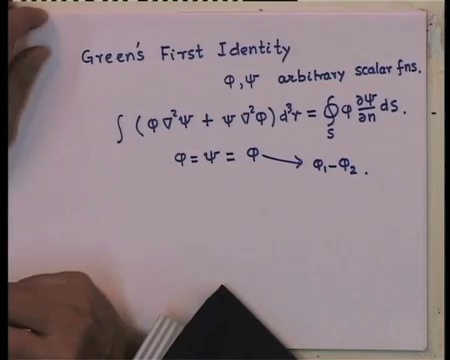 Green's First Identity
φ, ψ arbitrary scalar fns.
∫ (φ∇²ψ + ψ∇²φ) d³r = ∮_S φ ∂ψ/∂n dS.
φ = ψ = φ ⟶ φ₁-φ₂.